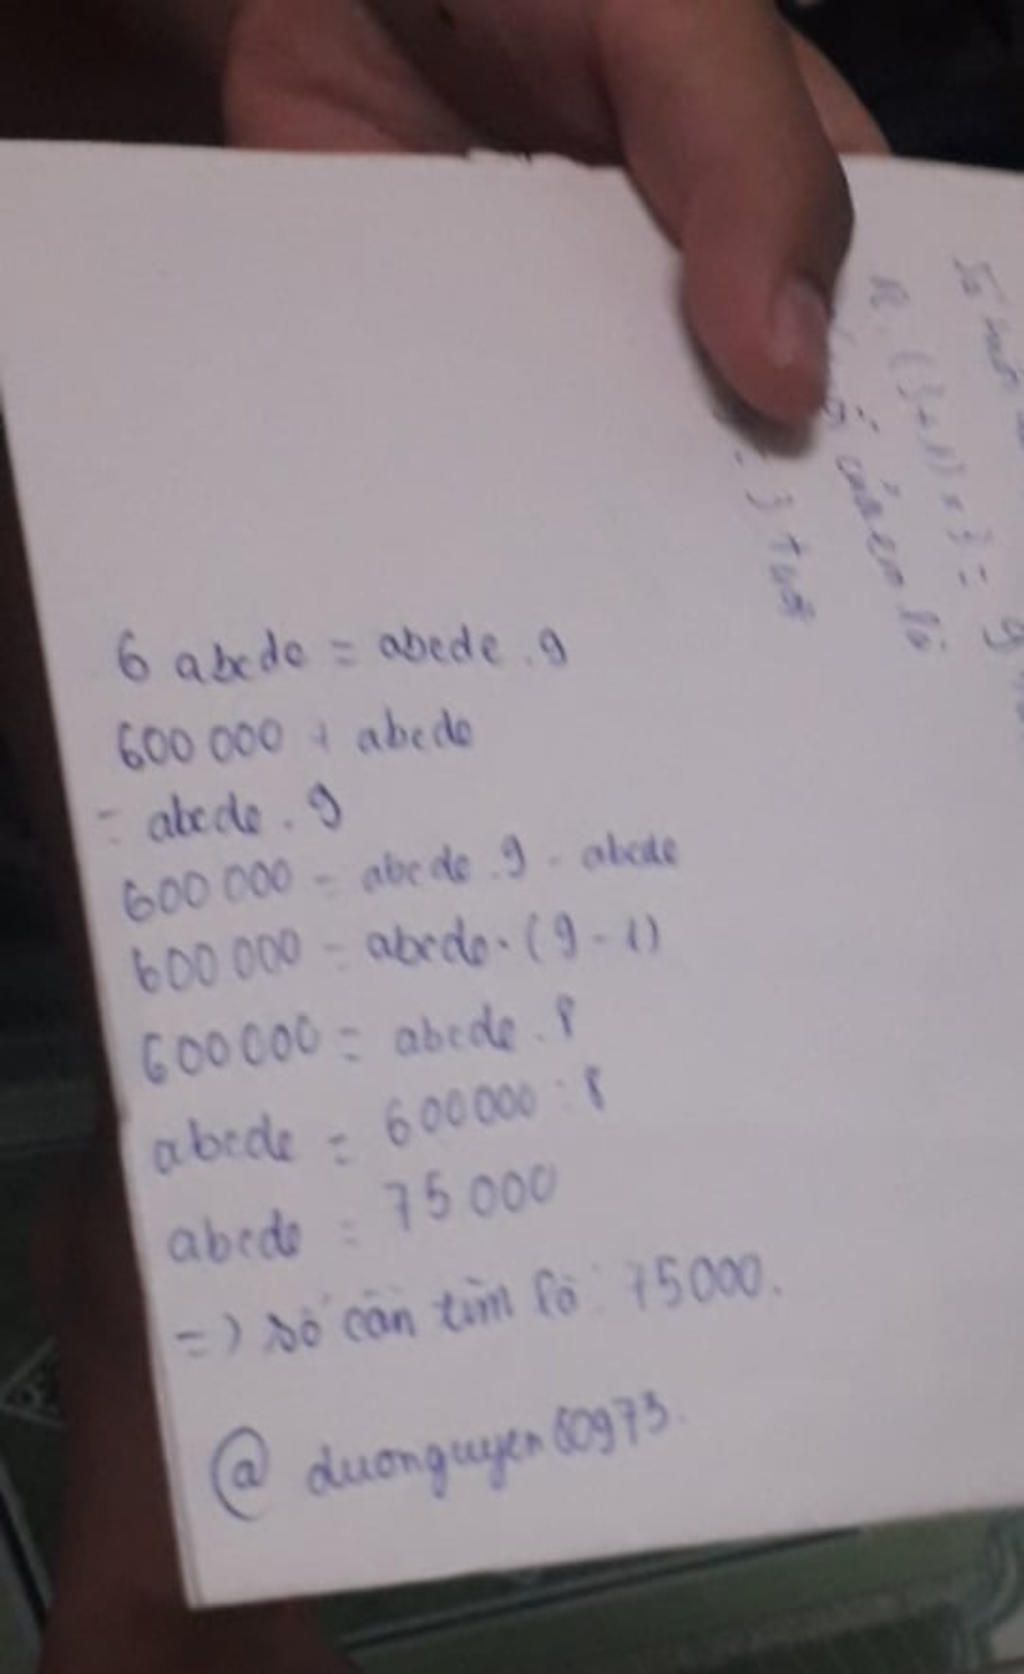 6 abcde = abcde . 9
600 000 + abcde
= abcde . 9
600 000 = abcde . 9 - abcde
600 000 = abcde . (9 - 1)
600 000 = abcde . 8
abcde = 600 000 : 8
abcde = 75 000
=) số cần tìm là : 75000.
@ duonguyen60973.
(3+1) × 3 = 9
của em là
: 3 tuổi